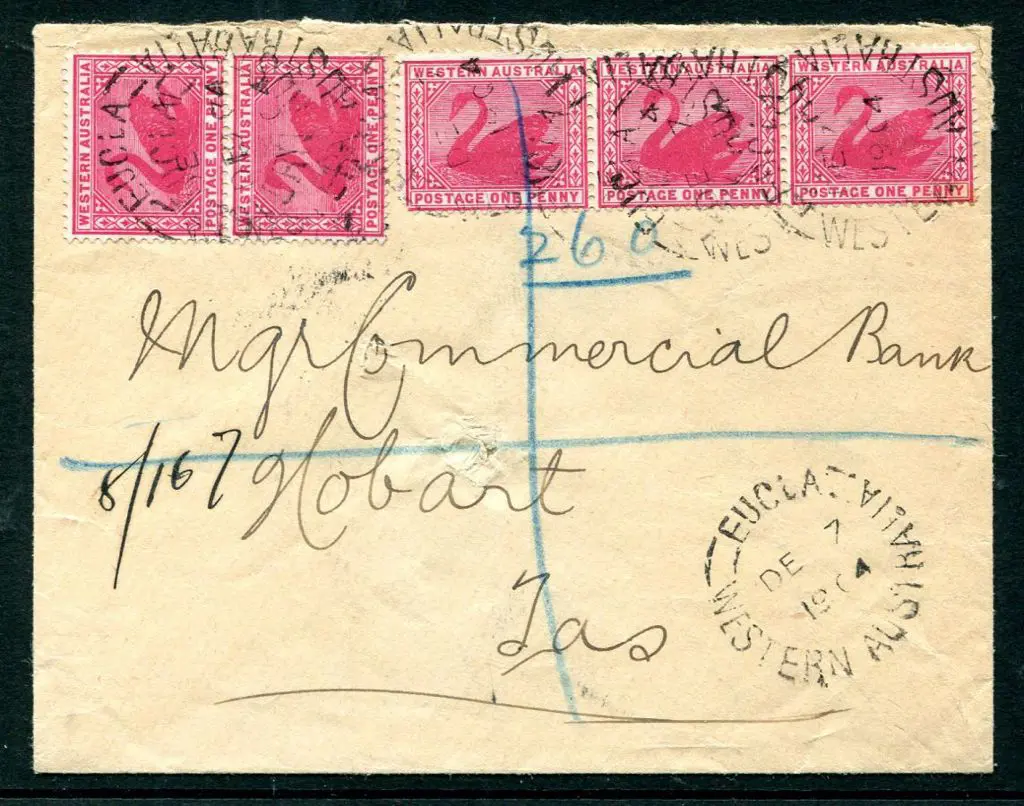 WESTERN AUSTRALIA
POSTAGE ONE PENNY
WESTERN AUSTRALIA
POSTAGE ONE PENNY
WESTERN AUSTRALIA
POSTAGE ONE PENNY
WESTERN AUSTRALIA
POSTAGE ONE PENNY
WESTERN AUSTRALIA
POSTAGE ONE PENNY
EUCLA
260
Mgr Commercial Bank
8/167 Hobart
Tas
EUCLA
DE 7
1904
WESTERN AUSTRALIA